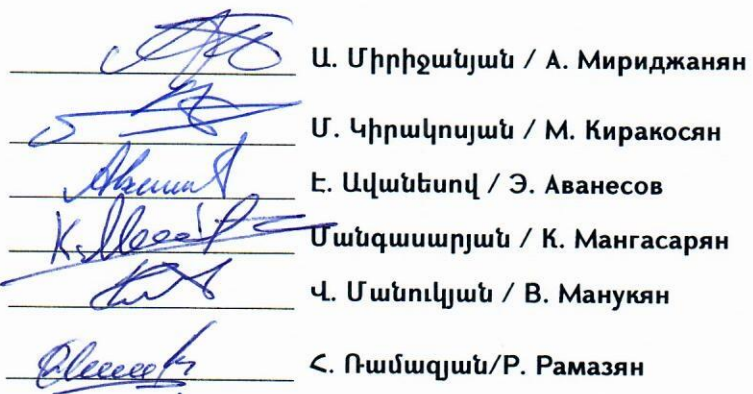 Ա. Միրիջանյան / А. Мириджанян
Մ. Կիրակոսյան / М. Киракосян
Է. Ավանեսով / Э. Аванесов
Մանգասարյան / К. Мангасарян
Վ. Մանուկյան / В. Манукян
Հ. Ռամազյան/Р. Рамазян